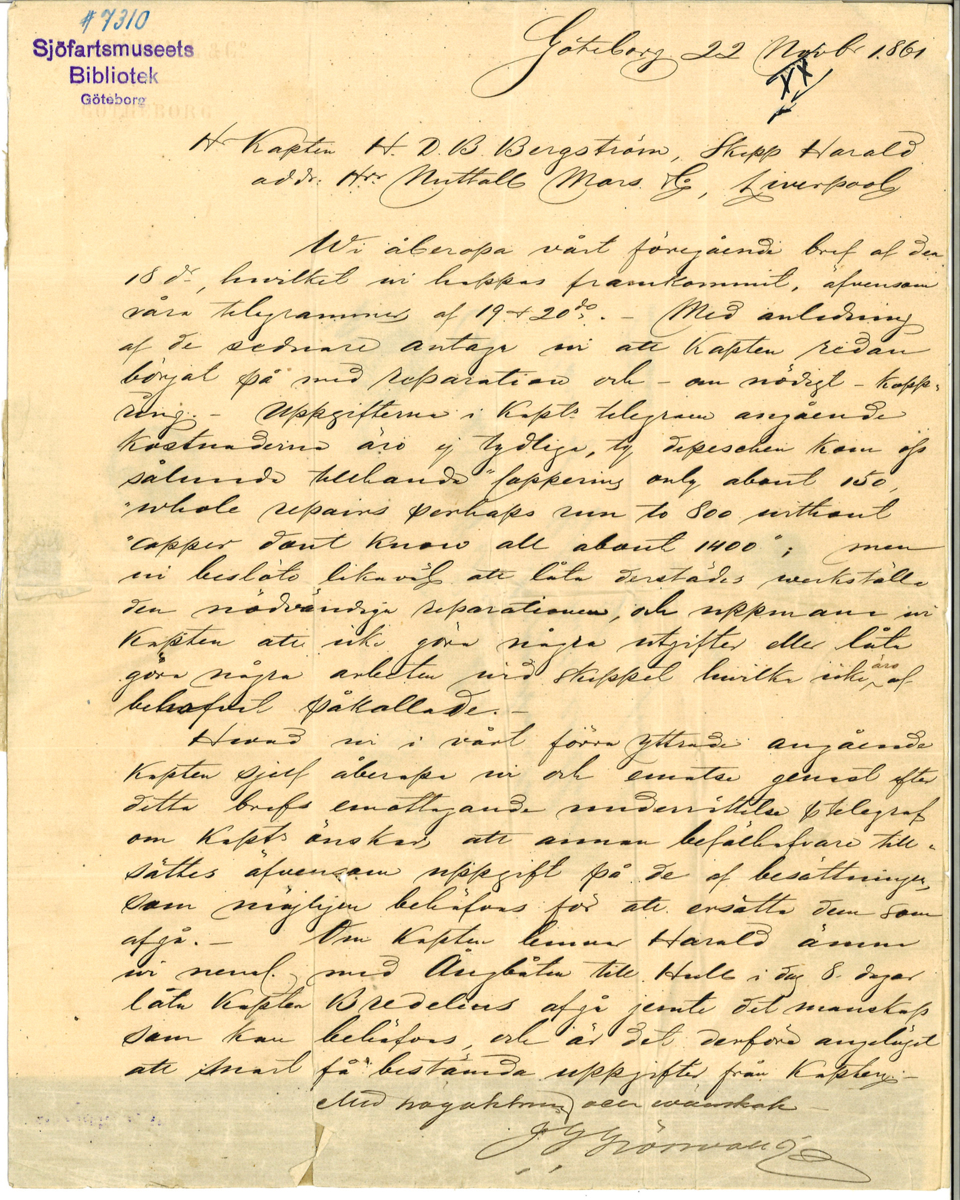 #7310
Sjöfartsmuseets
Bibliotek
Göteborg
Göteborg 22 Novbr 1861
Hr Kapten H. D. B. Bergström, Skepp Harald
addr: Hrr Nuttall Mars &C, Liverpool
Wi åberopa vårt föregående bref af den
18 ds, hwilket wi hoppas framkommit, äfvensom
våra telegrammer af 19 & 20 do. – Med anledning
af de sednare antaga wi att Kapten redan
börjat på med reparation och – om nödigt – kopp=
ring. – Uppgifterna i Kaptns telegram angående
kostnaderna äro ej tydliga, ty depeschen kom oss
sålunda tillhanda "coppering only about 150,
"whole repairs perhaps run to 800 without
"copper dont know all about 1400"; men
wi beslöto likawäl att låta derstädes werkställa
den nödvändiga reparationen, och uppmana wi
Kapten att icke göra några utgifter eller låta
göra några arbeten wid Skeppet hwilka icke äro af
behofvet påkallade. –
Hwad wi i vårt förra yttrade angående
Kapten sjelf åberopa wi och emotse genast efter
detta brefs emottagande underrättelse p telegraf
om Kaptn önskar att annan befälhafvare till=
sättes äfvensom uppgift på de af besättningen,
som möjligen behöfvas för att ersätta dem som
afgå. – Om Kapten lemnar Harald ämna
wi neml. med Ångbåten till Hull i dag 8 dagar
låta Kapten Bredelius afgå jemte det manskap
som kan behöfvas, och är det derföre angeläget
att snart få bestämda uppgifter från Kapten. –
Med högaktning och wänskap –